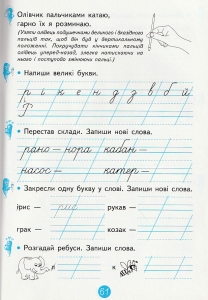 Олівчик пальчиками катаю,
гарно їх я розминаю.
(Узяти олівець подушечками великого і вказівного
пальців так, щоб він був у вертикальному
положенні. Покручувати кінчиками пальців
олівець уперед-назад, злегка натискаючи на
нього і поступово змінюючи пальці.)
Напиши великі букви.
р і к е н д з в б й
Г
Перестав склади. Запиши нові слова.
рано – нора кабан –
насос – катер –
Закресли одну букву у слові. Запиши нові слова.
ірис – рис рукав –
грак – козак –
Розгадай ребуси. Запиши слова.
61